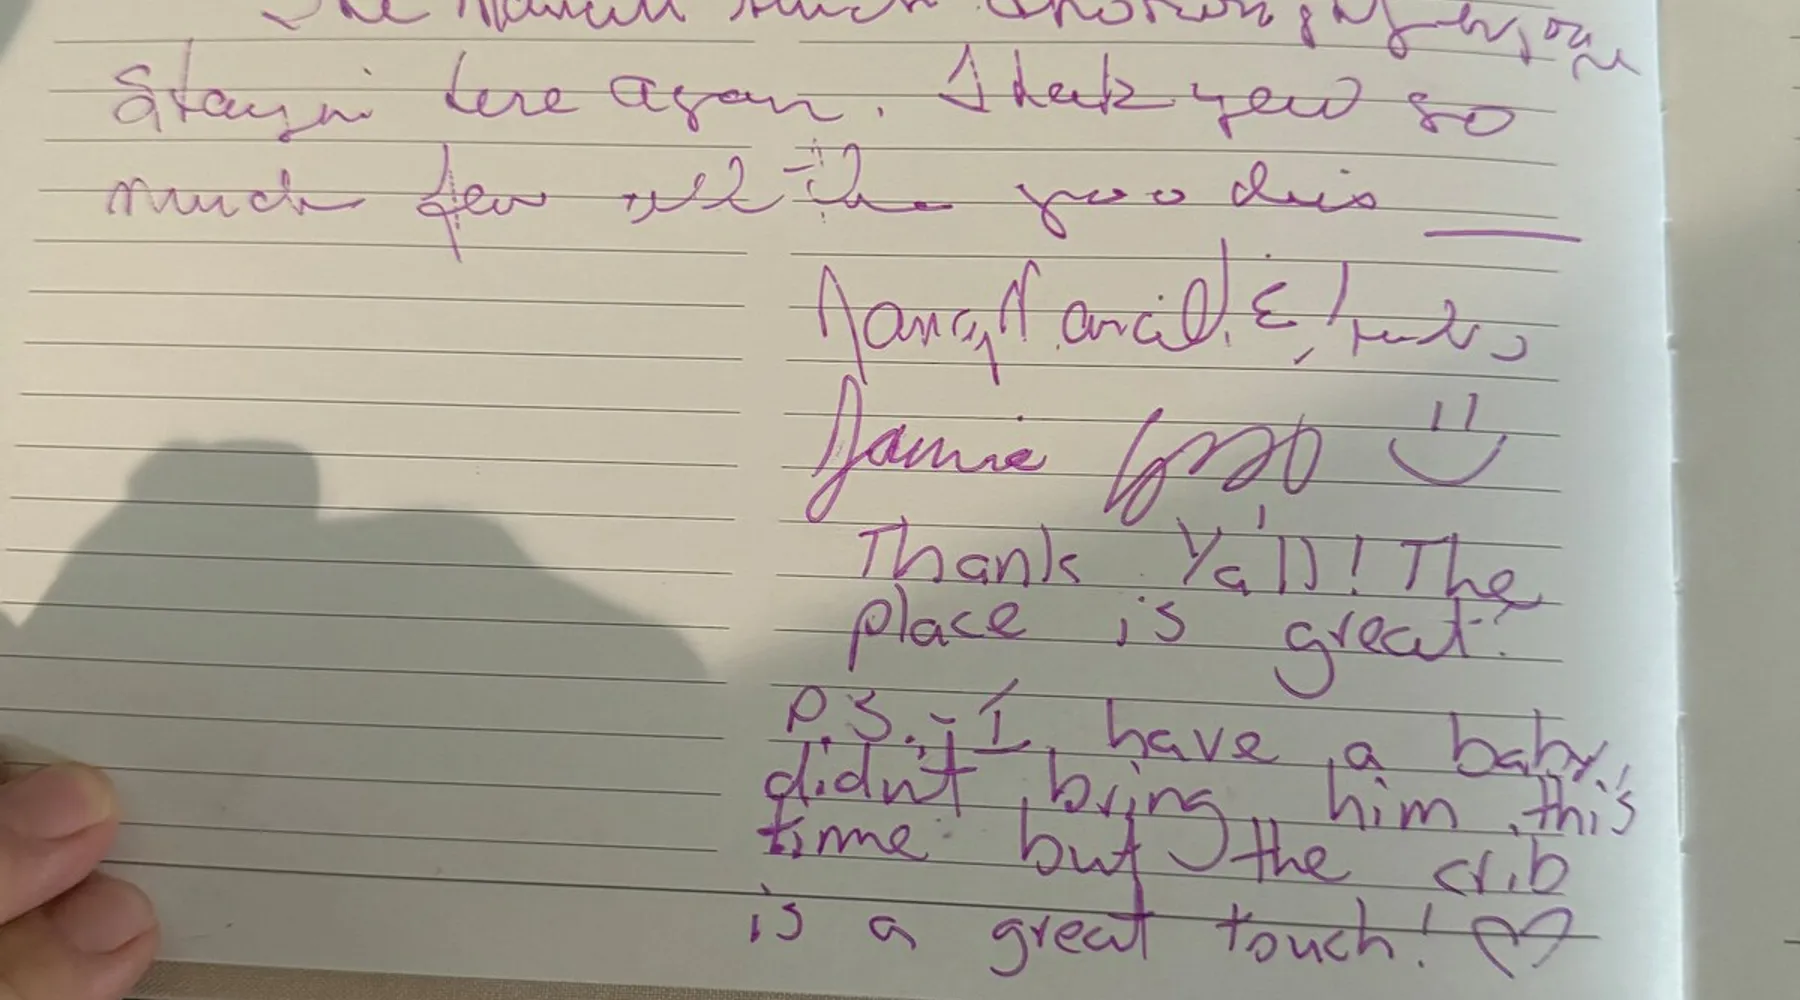 The much
Stayin here again. Thank you so
much for all the goodies
Nancy &
Jamie
Thank Ya'll! The
place is great!
P.S. - I have a baby,
didn't bring him this
time but the crib
is a great touch!